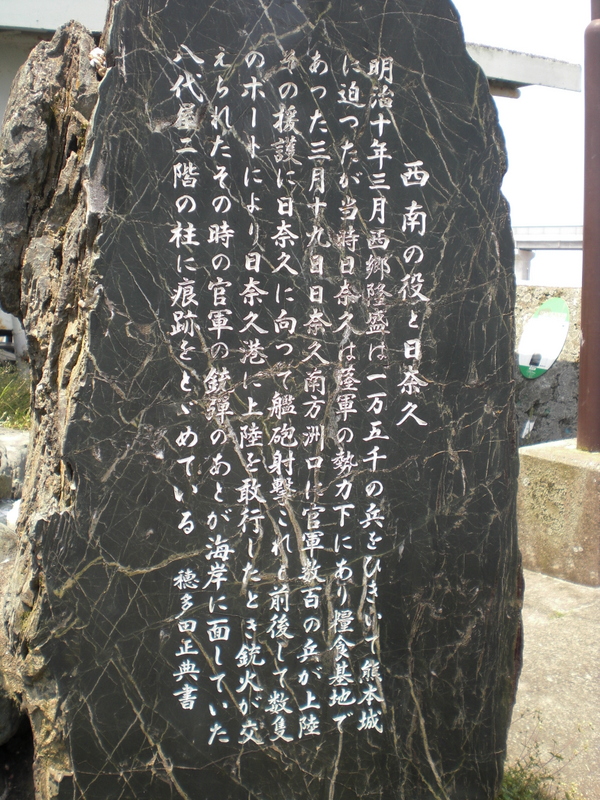 西南の役と日奈久
明治十年三月西郷隆盛は一万五千の兵をひきいて熊本城
に迫つたが当時日奈久は薩軍の勢力下にあり糧食基地で
あった三月十九日日奈久南方洲口に官軍数百の兵が上陸
その援護に日奈久に向つて艦砲射撃これと前後して数隻
のボートにより日奈久港に上陸を敢行したとき銃火が交
えられたその時の官軍の銃弾のあとが海岸に面していた
八代屋二階の柱に痕跡をとゞめている 穂多田正典書